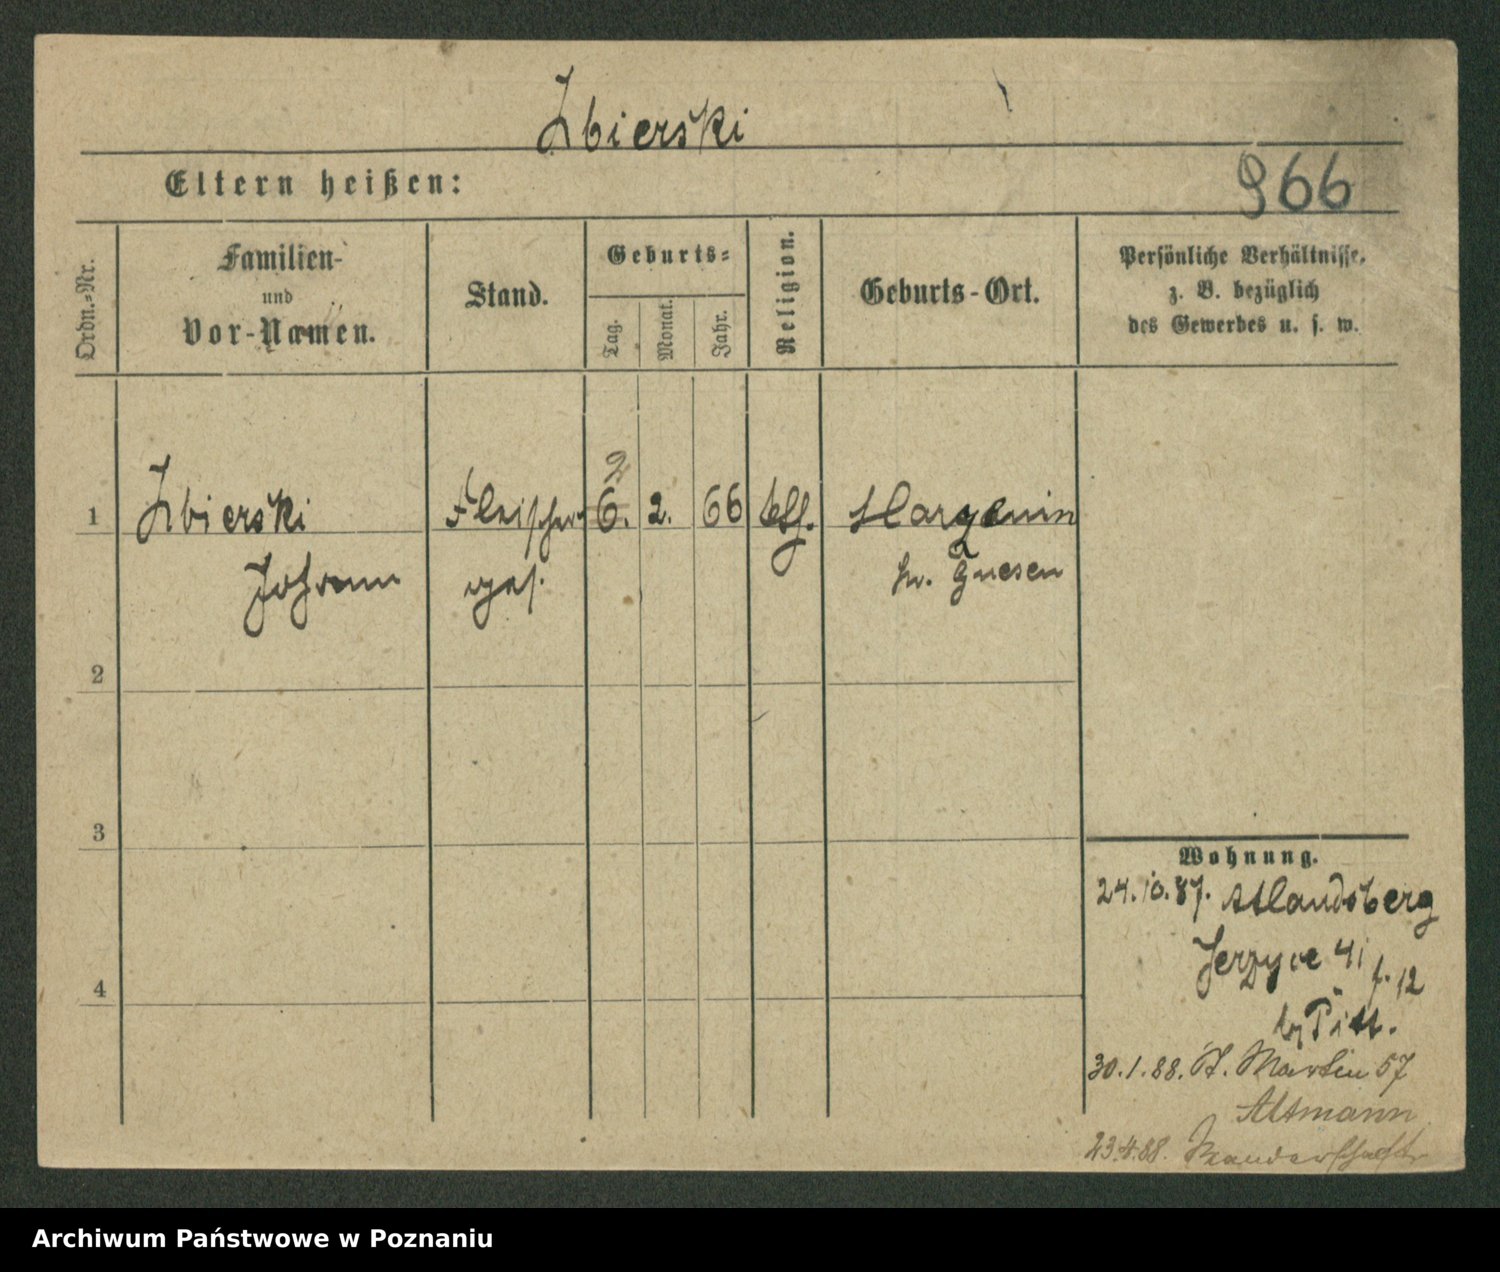 Zbierski
Eltern heißen:
966
Ordn.-Nr.
Familien-
und
Vor-Namen.
Stand.
Geburts-
Tag.
Monat.
Jahr.
Religion.
Geburts-Ort.
Persönliche Verhältnisse,
z. B. bezüglich
des Gewerbes u. s. w.
2
1 Zbierski Fleischer 6. 2. 66 kth.
Johann ges. Kr. Gnesen
2
3
4
Wohnung.
24.10.87. Landsberg
Jerzyce 41
f. 12
30.1.88. St. Martin 57
Altmann
23.4.88. Wanderschaft
Archiwum Państwowe w Poznaniu